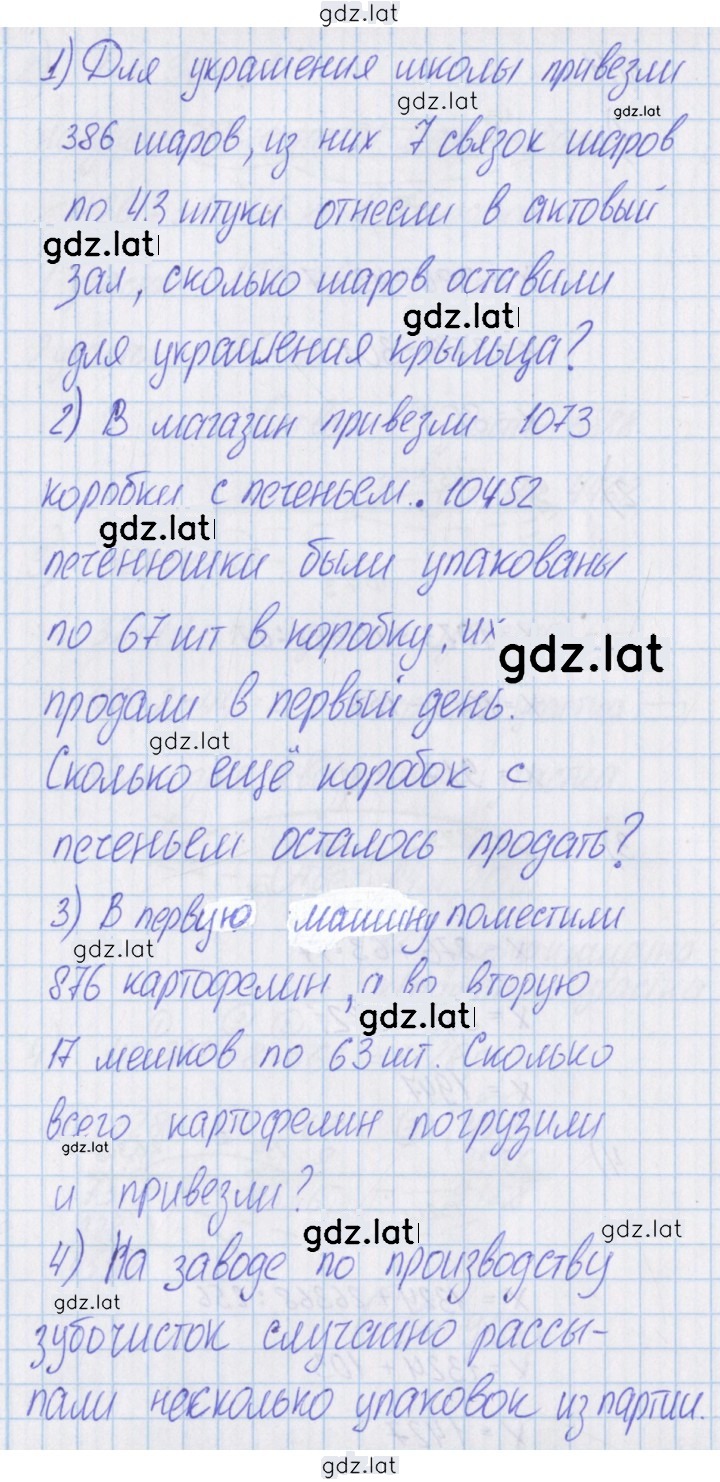 gdz.lat
1) Для украшения школы привезли
gdz.lat
gdz.lat
386 шаров, из них 7 связок шаров
по 43 штуки отнесли в актовый
gdz.lat
зал, сколько шаров оставили
gdz.lat
для украшения крыльца?
2) В магазин привезли 1073
коробки с печеньем. 10452
gdz.lat
печенюшки были упакованы
по 67 шт в коробку, их
gdz.lat
продали в первый день.
gdz.lat
Сколько ещё коробок с
печеньем осталось продать?
3) В первую машину поместили
gdz.lat
876 картофелин, а во вторую
gdz.lat
17 мешков по 63 шт. Сколько
всего картофелин погрузили
gdz.lat
и привезли?
gdz.lat
gdz.lat
4) На заводе по производству
gdz.lat
зубочисток случайно рассы-
пали несколько упаковок из партии.
gdz.lat